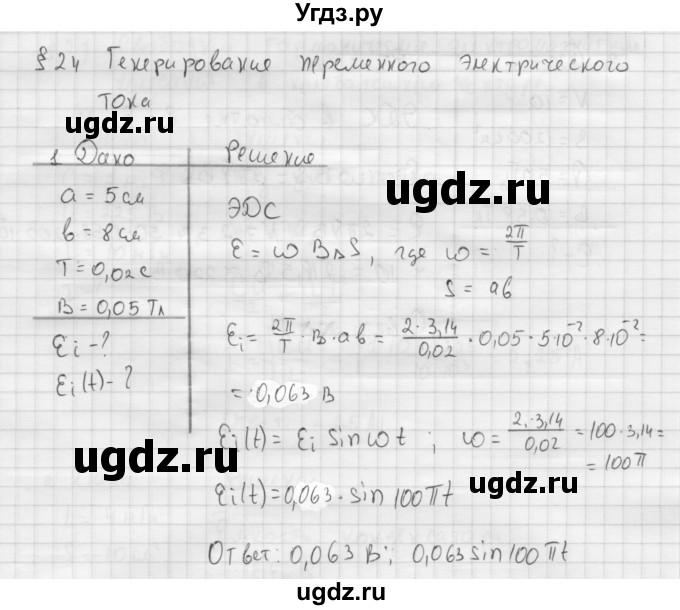 Угдз.ру
§ 24 Генерирование переменного электрического
тока
ugdz.ru
1 Дано
a = 5 см
в = 8 см
T = 0,02 с
B = 0,05 Тл
Ɛi - ?
Ɛi(t) - ?
ugdz.ru
Решение
ugdz.ru
ЭДС
Ɛ = ω B Δ S, где ω = 2π/T
S = aв
Ɛi = 2π/T · B · aв = 2 · 3,14/0,02 · 0,05 · 5·10⁻² · 8·10⁻² =
= 0,063 В
Ɛi(t) = Ɛi sin ωt ; ω = 2 · 3,14/0,02 = 100 · 3,14 =
= 100 π
Ɛi(t) = 0,063 · sin 100 πt
ugdz.ru
Ответ: 0,063 В; 0,063 sin 100 πt
ugdz.ru